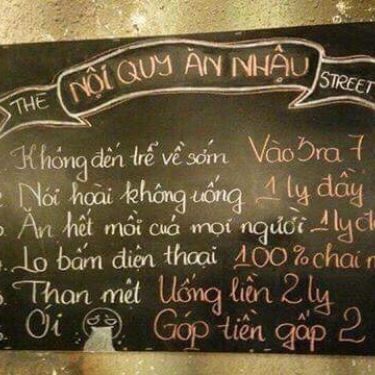 THE NỘI QUY ĂN NHẬU STREET
Không đến trễ về sớm Vào 3 ra 7
Nói hoài không uống 1 ly đầy
Ăn hết mồi cuả mọi người 1 ly
Lo bấm điện thoại 100% chai
Than mệt Uống liền 2 ly
Ói Góp tiền gấp 2